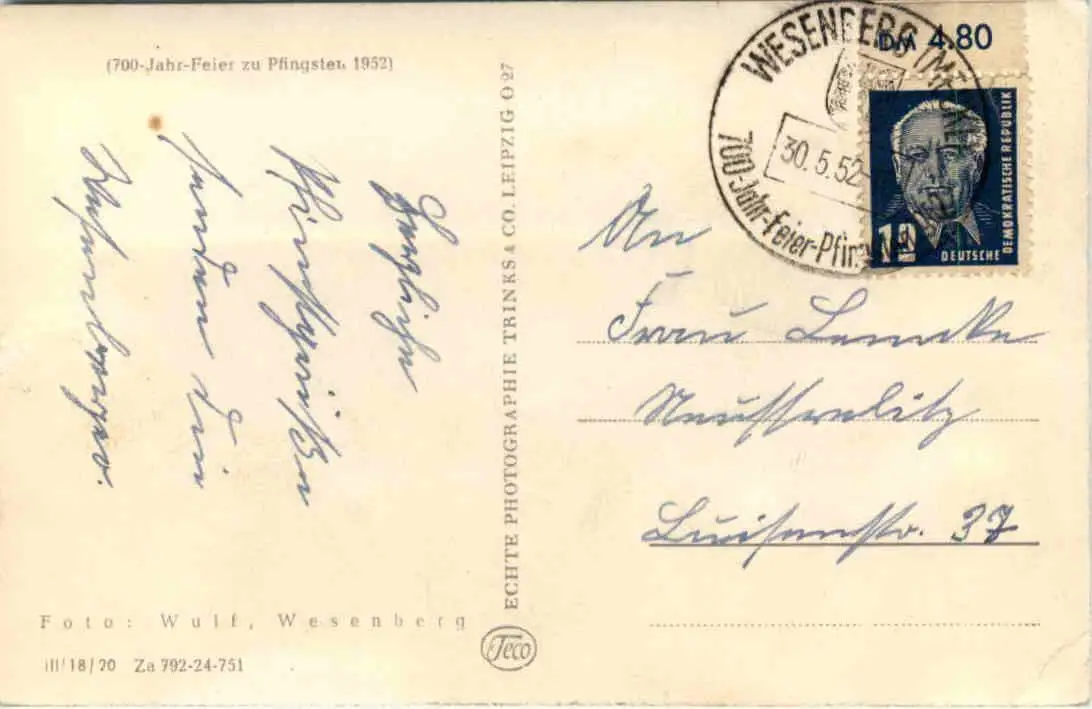 (700-Jahr-Feier zu Pfingsten 1952)
Herzliche
Pfingstgrüße
senden die
Wesenberger.
Foto: Wulf, Wesenberg
III/18/70 Za 792-24-751
ECHTE PHOTOGRAPHIE TRINKS & CO. LEIPZIG O 27
Teco
WESENBERG
30.5.52
700-Jahr-Feier-Pfing
DM 4.80
12
DEUTSCHE
DEMOKRATISCHE REPUBLIK
An
Frau Lemcke
Neustrelitz
Luisenstr. 37